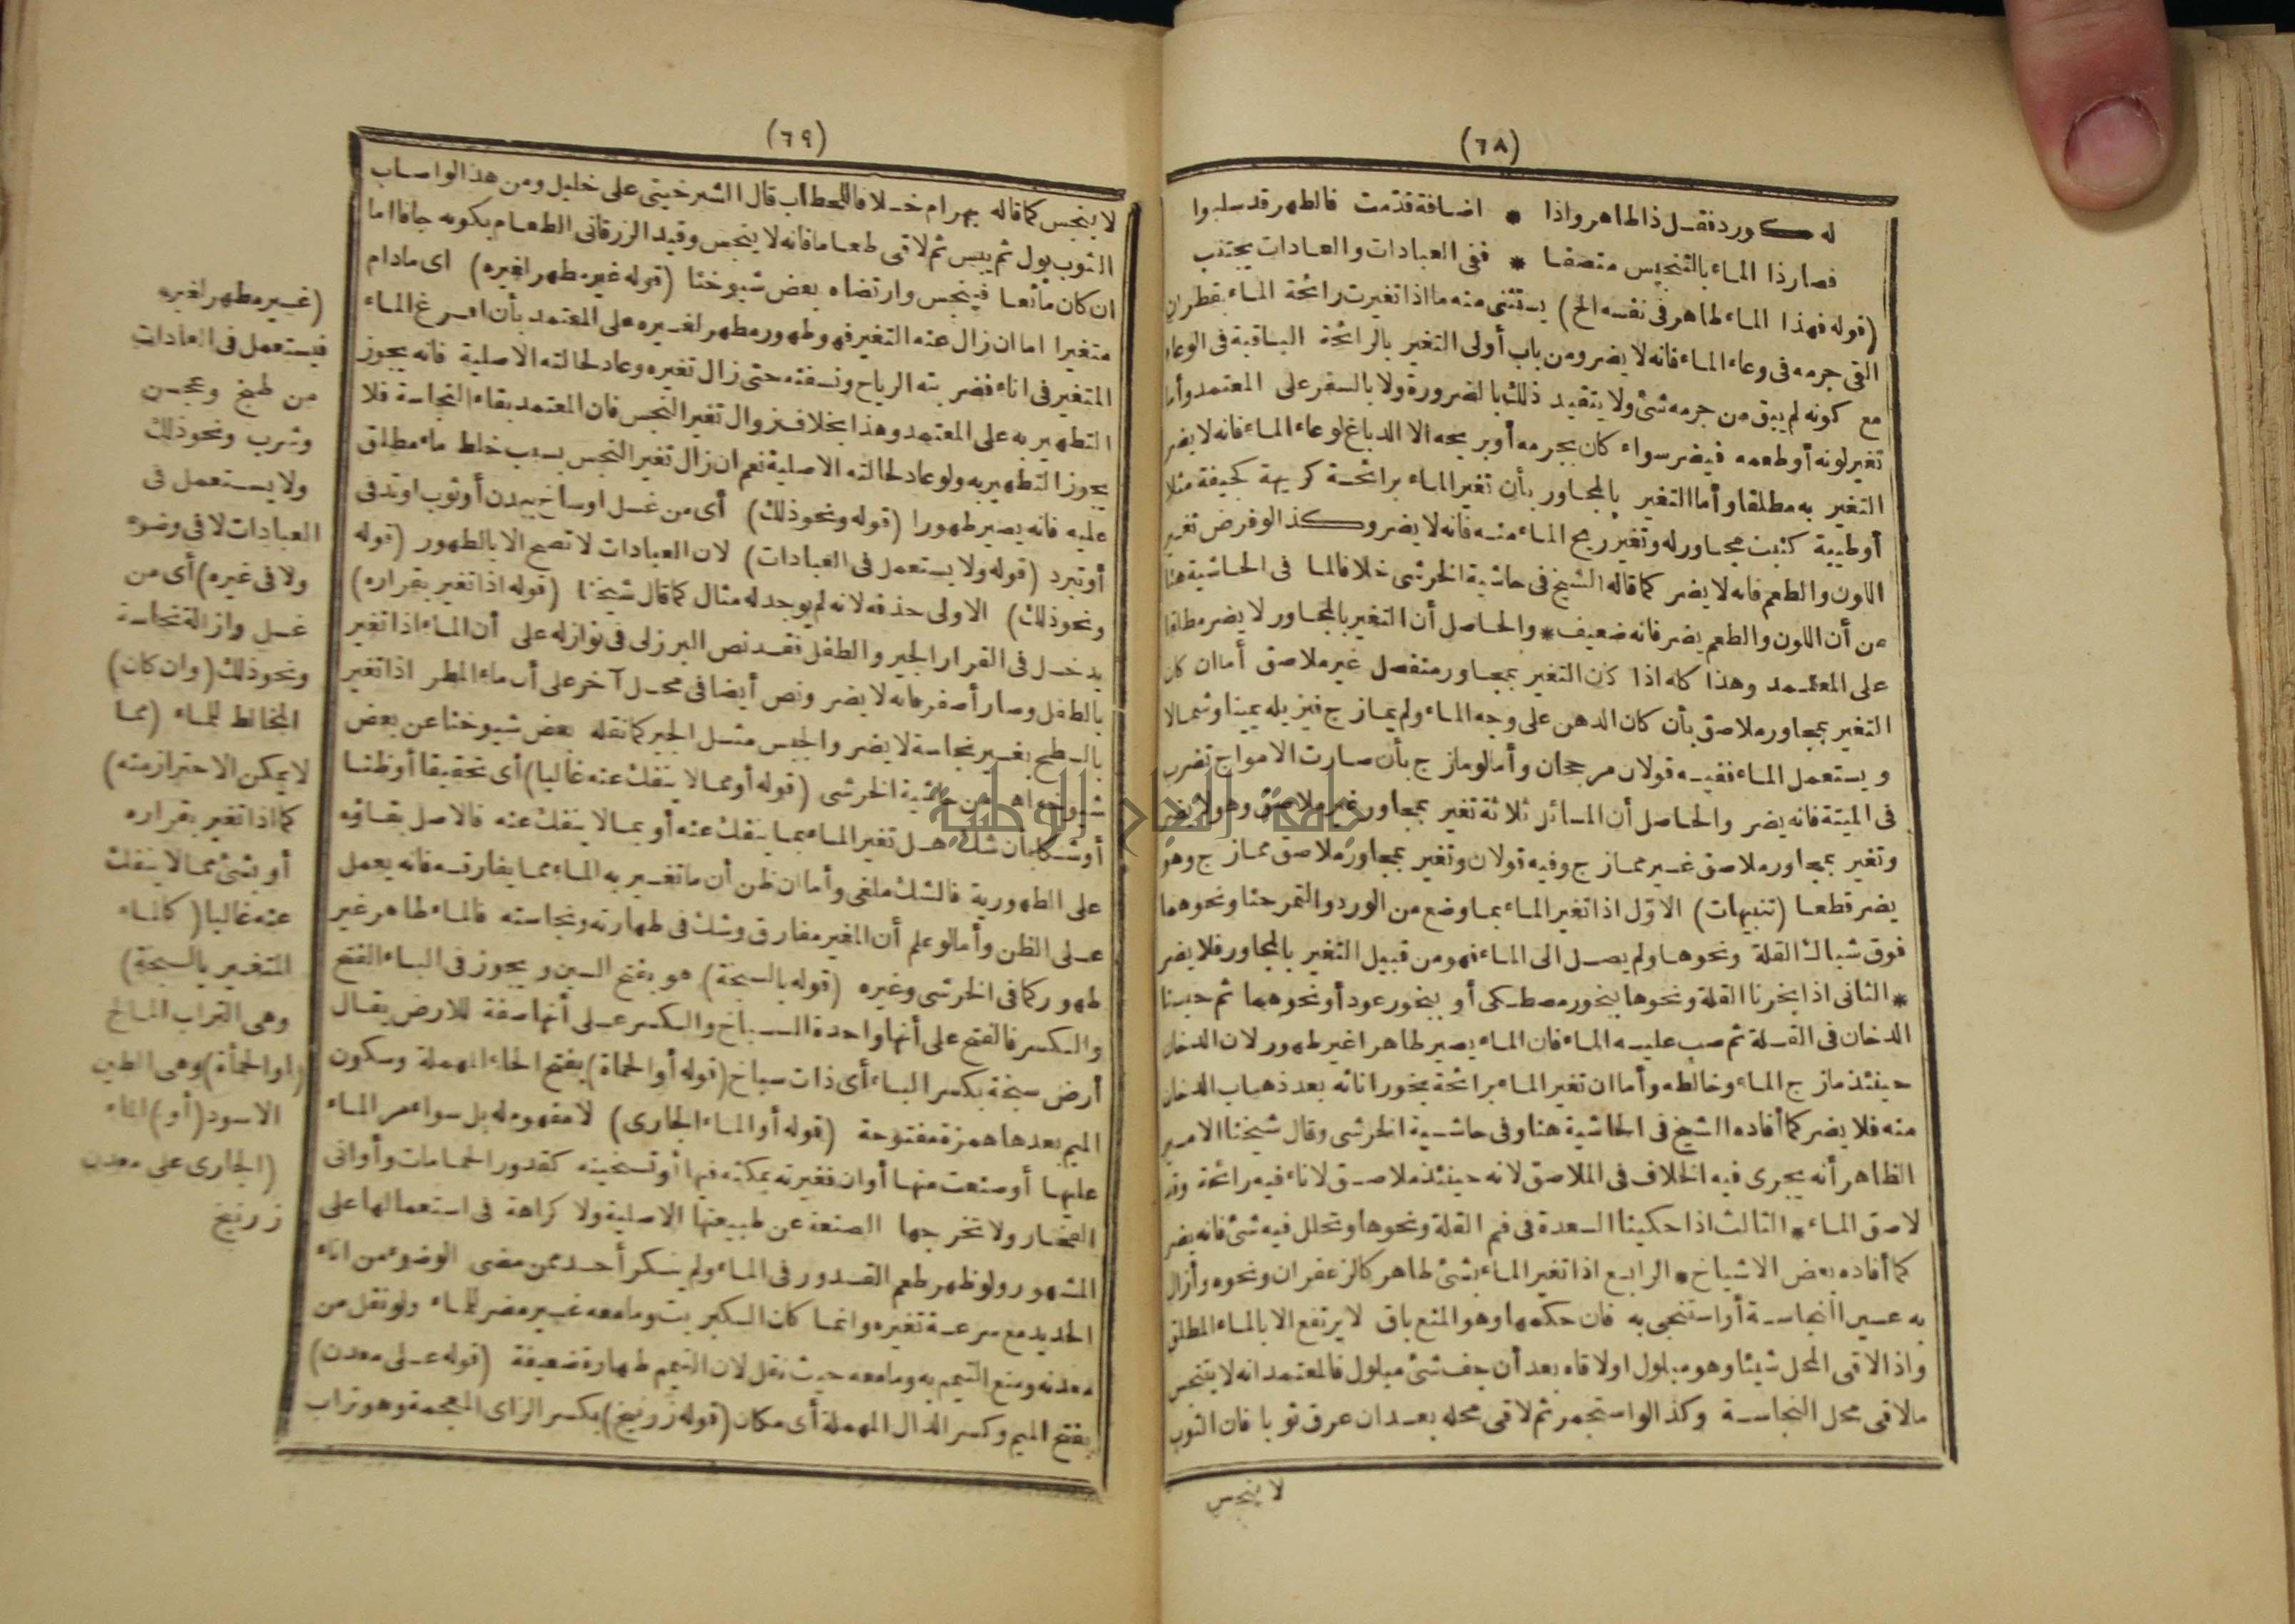 (٦٨)
له كورد فقل ذا طاهر واذا * اضافة قدّمت فالطهر قد سلبوا
فصار ذا الماء بالتنجيس متصفا * ففى العبادات والعادات يجتنب
(قوله فهذا الماء طاهر فى نفسه الخ) يستثنى منه ما اذا تغيرت رائحة الماء بقطران
القى جرمه فى وعاء الماء فانه لا يضر ومن باب أولى التغير بالرائحة الباقية فى الوعاء
مع كونه لم يبق من جرمه شئ ولا يتقيد ذلك بالضرورة ولا بالسفر على المعتمد وأما
تغير لونه أو طعمه فيضر سواء كان بجرمه أو بريحه الا الدباغ لوعاء الماء فانه لا يضر
التغير به مطلقا وأما التغير بالمجاور بأن تغير الماء برائحة كريهة كجيفة مثلا
أو طيبة كنبت مجاور له وتغير ريح الماء منه فانه لا يضر وكذا لو فرض تغير
اللون والطعم فانه لا يضر كما قاله الشيخ فى حاشية الخرشى خلافا لما فى الحاشية هنا
من أن اللون والطعم يضر فانه ضعيف * والحاصل أن التغير بالمجاور لا يضر مطلقا
على المعتمد وهذا كله اذا كان التغير بمجاور منفصل غير ملاصق أما ان كان
التغير بمجاور ملاصق بأن كان الدهن على وجه الماء ولم يمازج فنزيله يمينا وشمالا
ويستعمل الماء ففيه قولان مرجحان وأما لو مازج بأن صارت الامواج تضرب
فى الميتة فانه يضر والحاصل أن المسائل ثلاثة تغير بمجاور غير ملاصق وهو لا يضر
وتغير بمجاور ملاصق غير ممازج وفيه قولان وتغير بمجاور ملاصق ممازج وهو
يضر قطعا (تنبيهات) الاوّل اذا تغير الماء بما وضع من الورد والتمرحنا ونحوهما
فوق شباك القلة ونحوها ولم يصل الى الماء فهو من قبيل التغير بالمجاور فلا يضر
* الثانى اذا بخرنا القلة ونحوها ببخور مصطكى أو ببخور عود أو نحوهما ثم حبسنا
الدخان فى القلة ثم صب عليه الماء فان الماء يصير طاهرا غير طهور لان الدخان
حينئذ مازج الماء وخالطه وأما ان تغير الماء برائحة بخور انائه بعد ذهاب الدخان
منه فلا يضر كما أفاده الشيخ فى الحاشية هنا وفى حاشية الخرشى وقال شيخنا الامير
الظاهر أنه يجرى فيه الخلاف فى الملاصق لانه حينئذ ملاصق لاناء فيه رائحة وقد
لاصق الماء * الثالث اذا حكينا السعدة فى فم القلة ونحوها وتحلل فيه شئ فانه يضر
كما أفاده بعض الاشياخ * الرابع اذا تغير الماء بشئ طاهر كالزعفران ونحوه وأزال
به عين النجاسة أو استنجى به فان حكمها وهو المنع باق لا يرتفع الا بالماء المطلق
واذا لاقى المحل شيئا وهو مبلول او لاقاه بعد أن جف شئ مبلول فالمعتمد انه لا يتنجس
ما لاقى محل النجاسة وكذا لو استجمر ثم لاقى محله بعد ان عرق ثوبا فان الثوب
لا ينجس
(٦٩)
لا ينجس كما قاله بهرام خلافا للحطاب قال الشبرخيتى على خليل ومن هذا لو أصاب
الثوب بول ثم يبس ثم لاقى طعاما فانه لا ينجس وقيد الزرقانى الطعام بكونه جافا اما
ان كان مائعا فينجس وارتضاه بعض شيوخنا (قوله غير مطهر لغيره) اى مادام
متغيرا اما ان زال عنه التغير فهو طهور مطهر لغيره على المعتمد بأن افرغ الماء
المتغير فى اناء فضربته الرياح ونسفته حتى زال تغيره وعاد لحالته الاصلية فانه يجوز
التطهير به على المعتمد وهذا بخلاف زوال تغير النجس فان المعتمد بقاء النجاسة فلا
يجوز التطهير به ولو عاد لحالته الاصلية نعم ان زال تغير النجس بسبب خلط ماء مطلق
عليه فانه يصير طهورا (قوله ونحو ذلك) أى من غسل اوساخ ببدن أو ثوب او تدفى
أو تبرد (قوله ولا يستعمل فى العبادات) لان العبادات لا تصح الا بالطهور (قوله
ونحو ذلك) الاولى حذفه لانه لم يوجد له مثال كما قال شيخنا (قوله اذا تغير بقراره)
يدخل فى القرار الجير والطفل فقد نص البرزلى فى نوازله على أن الماء اذا تغير
بالطفل وصار أصفر فانه لا يضر ونص أيضا فى محل آخر على أن ماء المطر اذا تغير
بالسطح بغير نجاسة لا يضر والجبس مثل الجير كما نقله بعض شيوخنا عن بعض
شيوخه اهـ من حاشية الخرشى (قوله أو مما لا ينفك عنه غالبا) أى تحقيقا أو ظنا
أو شكا بأن شك هل تغير الماء بما ينفك عنه أو بما لا ينفك عنه فالاصل بقاؤه
على الطهورية فالشك ملغى وأما ان ظن أن ما تغير به الماء مما يفارقه فانه يعمل
على الظن وأما لو علم أن المغير مفارق وشك فى طهارته ونجاسته فالماء طاهر غير
طهور كما فى الخرشى وغيره (قوله بالسبخة) هو بفتح السين ويجوز فى الباء الفتح
والكسر فالفتح على أنها واحدة السباخ والكسر على أنها صفة للارض يقال
أرض سبخة بكسر الباء أى ذات سباخ (قوله أو الحمأة) بفتح الحاء المهملة وسكون
الميم بعدها همزة مفتوحة (قوله أو الماء الجارى) لا مفهوم له بل سواء مر الماء
عليها أو صنعت منها أوان فغيرته بمكثه فيها أو تسخينه كقدور الحمامات وأوانى
الفخار ولا تخرجها الصنعة عن طبيعتها الاصلية ولا كراهة فى استعمالها على
المشهور ولو ظهر طعم القدور فى الماء ولم ينكر أحد ممن مضى الوضوء من اناء
الحديد مع سرعة تغيره وانما كان الكبريت وما معه غير مضر للماء ولو نقل من
معدنه ومنع التيمم به وما معه حيث نقل لان التيمم طهارة ضعيفة (قوله على معدن)
بفتح الميم وكسر الدال المهملة أى مكان (قوله زرنيخ) بكسر الزاى المعجمة وهو تراب
(غير مطهر لغيره
فيستعمل فى العادات
من طبخ وعجن
وشرب ونحو ذلك
ولا يستعمل فى
العبادات لا فى وضوء
ولا فى غيره) أى من
غسل وازالة نجاسة
ونحو ذلك (وان كان)
المخالط للماء (مما
لا يمكن الاحتراز منه)
كما اذا تغير بقراره
أو بشئ مما لا ينفك
عنه غالبا (كالماء
المتغير بالسبخة)
وهى التراب المالح
(او الحمأة) وهى الطين
الاسود (أو) الماء
(الجارى على معدن
زرنيخ